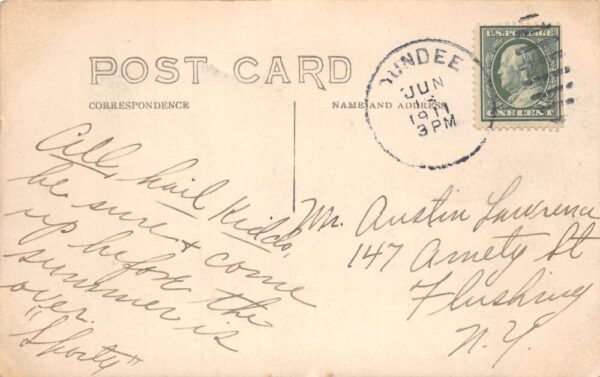 POST CARD
CORRESPONDENCE
NAME AND ADDRESS
DUNDEE
JUN
1911
3 PM
U.S. POSTAGE
ONE CENT
All, hail Kiddo,
be sure & come
up before the
summer is
over.
"Shorty"
Mr. Austin Lawrence
147 Amety St
Flushing
N.Y.